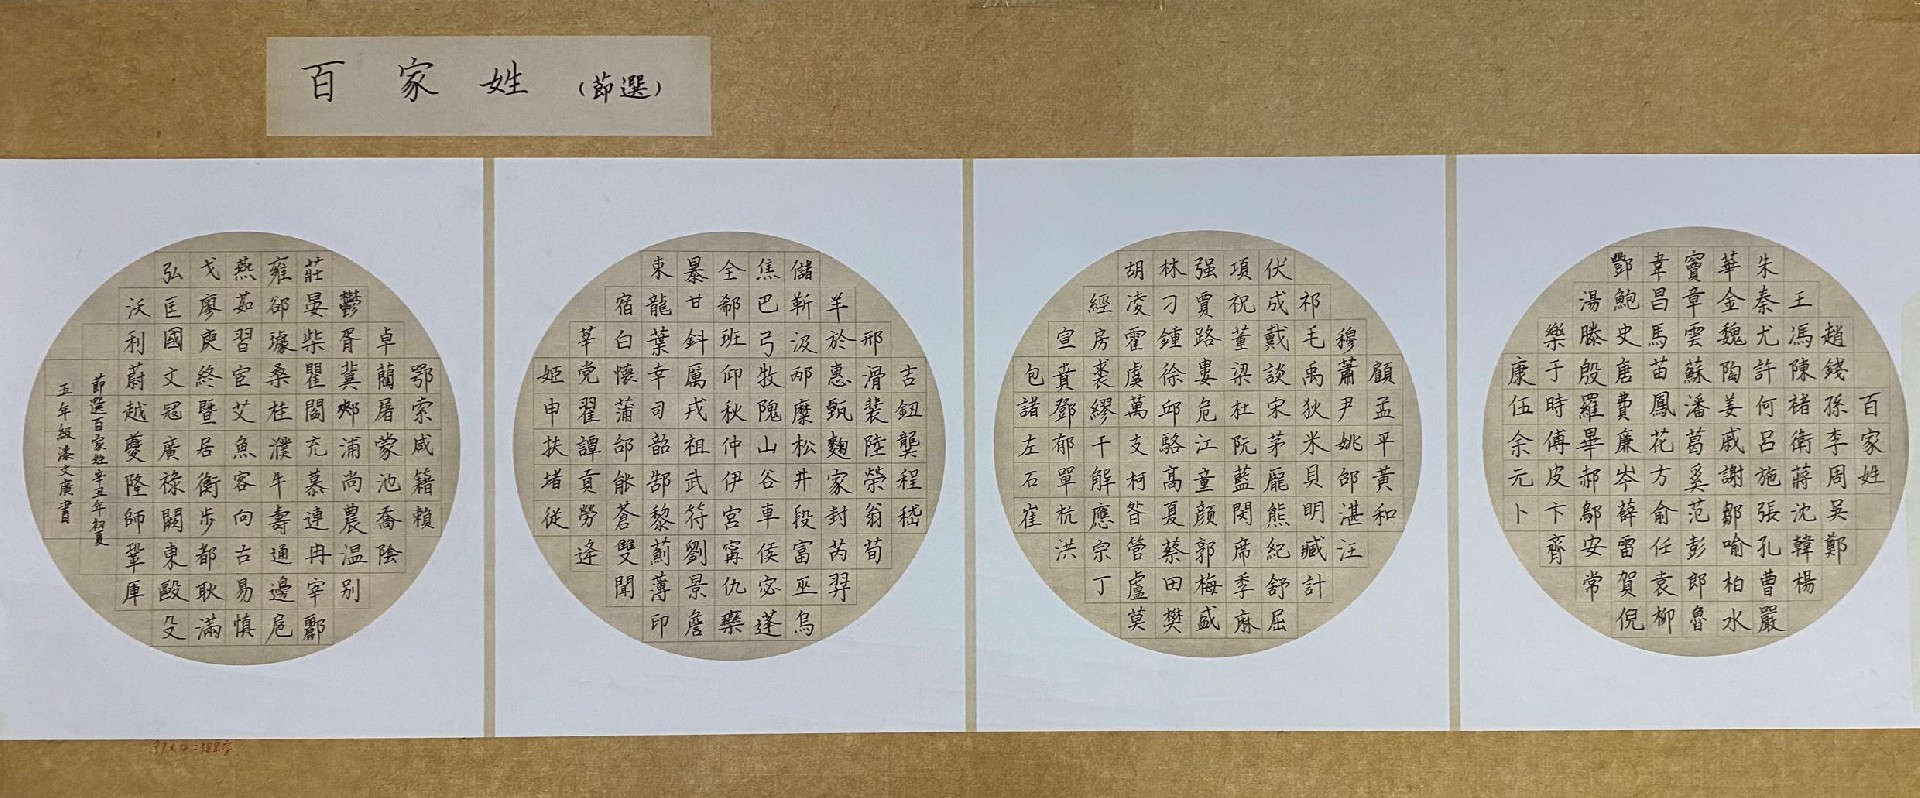 百家姓（節選）
百家姓
趙錢孫李周吳鄭
王馮陳褚衛蔣沈韓楊
朱秦尤許何呂施張孔曹嚴
華金魏陶姜戚謝鄒喻柏水
竇章雲蘇潘葛奚范彭郎魯
韋昌馬苗鳳花方俞任袁柳
酆鮑史唐費廉岑薛雷賀倪
湯滕殷羅畢郝鄔安常
樂于時傅皮卞齊
康伍余元卜
顧孟平黃和
穆蕭尹姚邵湛汪
祁毛禹狄米貝明臧計
伏成戴談宋茅龐熊紀舒屈
項祝董梁杜阮藍閔席季麻
强賈路婁危江童顔郭梅盛
林刁鍾徐邱駱高夏蔡田樊
胡凌霍虞萬支柯昝管盧莫
經房裘繆干解應宗丁
宣賁鄧郁單杭洪
包諸左石崔
吉鈕龔程嵇
邢滑裴陸榮翁荀
羊於惠甄麴家封芮羿
儲靳汲邴糜松井段富巫烏
焦巴弓牧隗山谷車侯宓蓬
全郗班仰秋仲伊宮甯仇欒
暴甘斜厲戎祖武符劉景詹
束龍葉幸司韶郜黎薊薄印
宿白懷蒲邰能蒼雙聞
莘党翟譚貢勞逄
姬申扶堵從
鄂索咸籍賴
卓藺屠蒙池喬陰
鬱胥冀郟浦尚農温別
莊晏柴瞿閻充慕連冉宰酈
雍郤璩桑桂濮牛壽通邊扈
燕茹習宦艾魚容向古易慎
戈廖庾終暨居衡步都耿滿
弘匡國文寇廣祿闕東毆殳
沃利蔚越夔隆師鞏厙
節選百家姓辛丑年初夏
五年級漆文廣書
97×4=388字